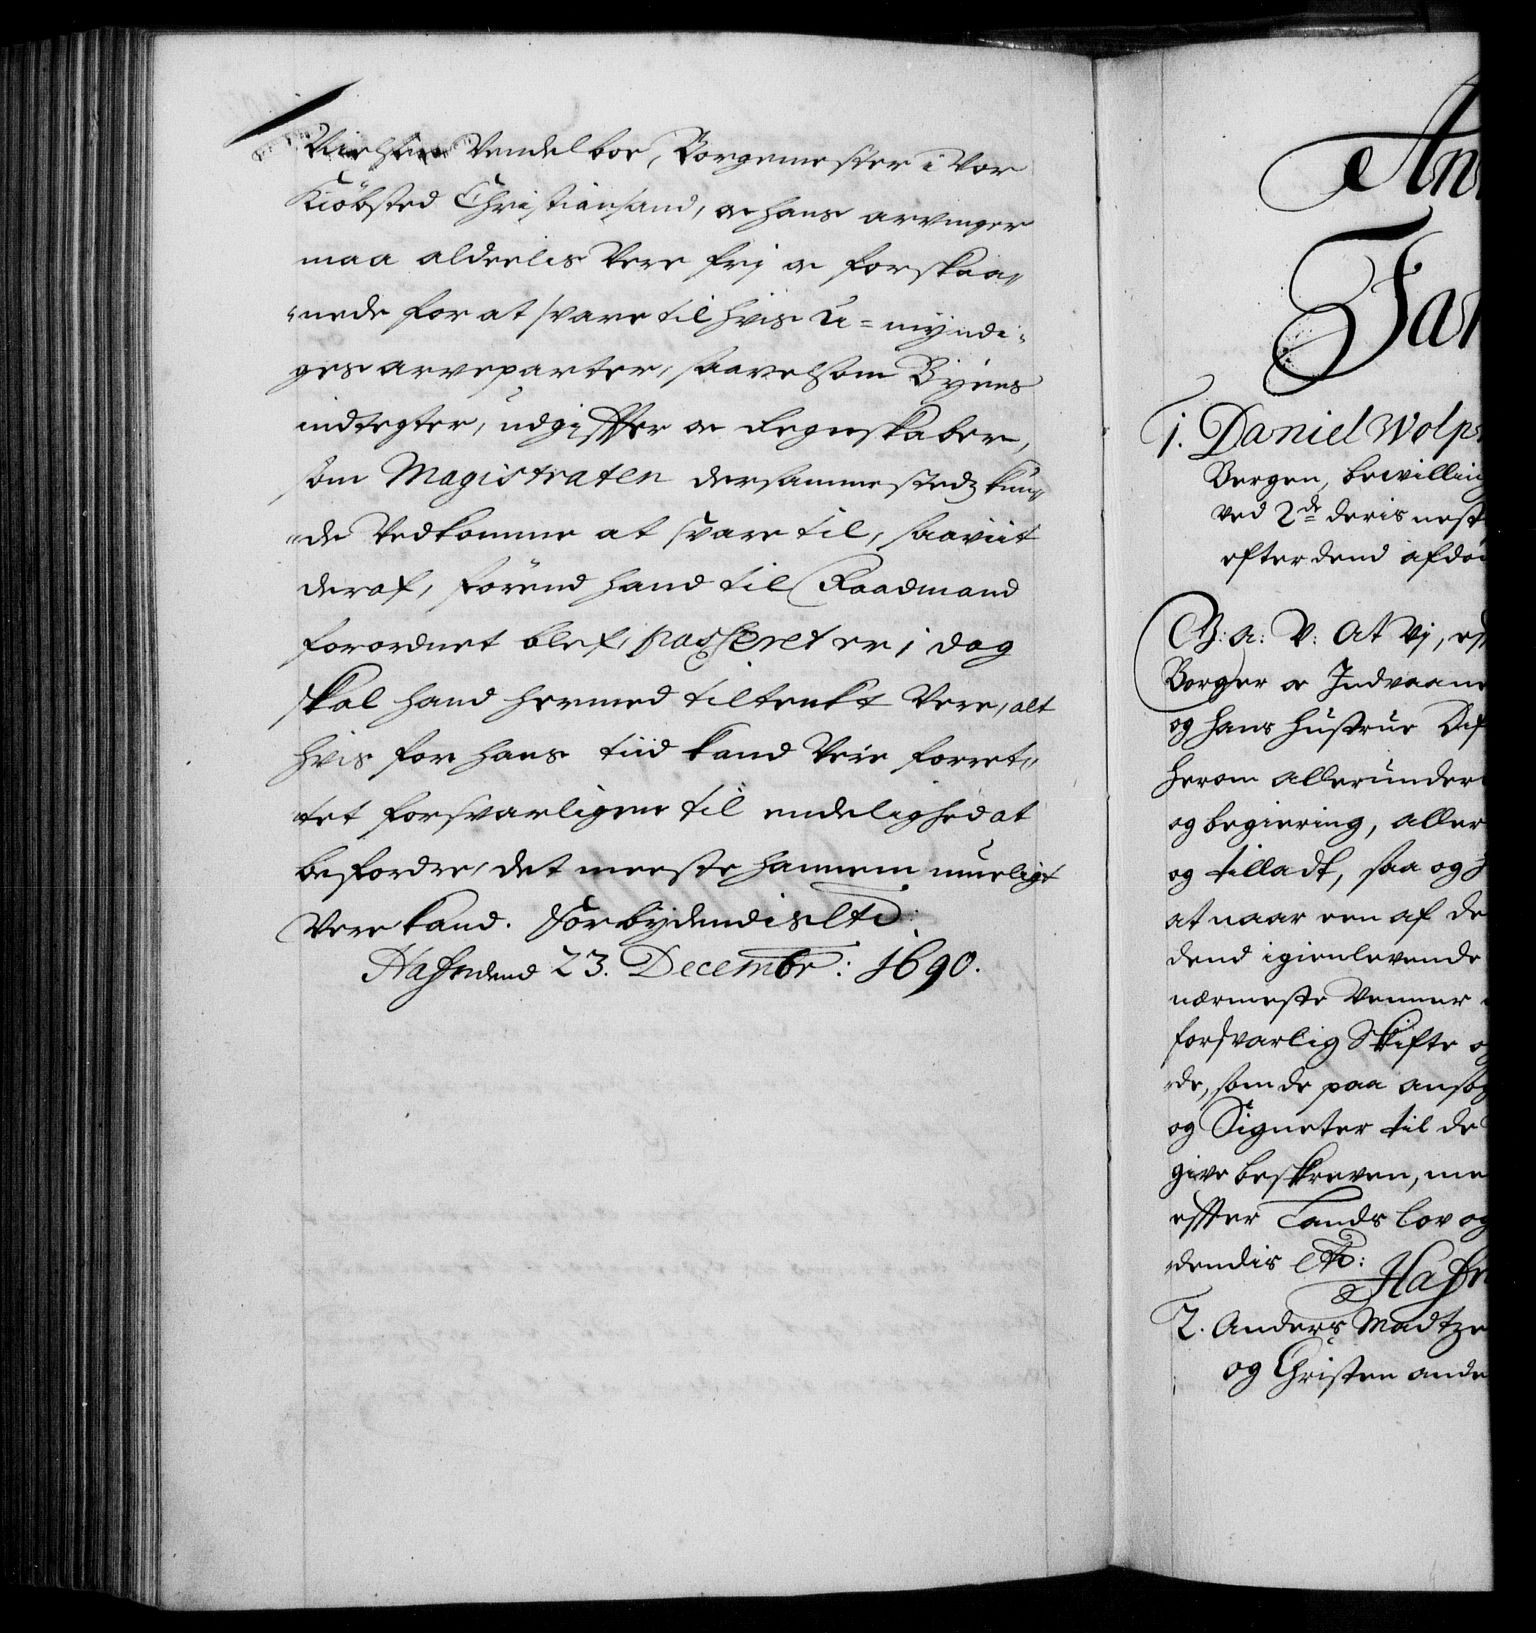 Nielsen Vendelboe, Borgemester i Vor
Kiöbsted Christiansand, oc hans arvinger
maa alderlis Vere frj oc forskaa„
„nede for at svare til hvis U=myndi„
ges arveparter, saavelsom Byens
indtegter, udgiffter oc Regnskaber,
som Magistraten dersammestedz kun„
„de Vedkomme at svare til, saaviit
deraf, förend hand til Raadmand
forordnet blef, passeret er, i dog
skal hand hermed tiltenkt Vere, alt
hvis for hans tiid kand Vere forret„
tet forsvarligen til endelighed at
befordre, det meeste hannem mueligt
Vere kand. Forbydendis etc:
Hafn dend 23. Decembr: 1690.
An
Jan
1. Daniel Wolp
Bergen, bewilling
ved 2de deris nest
efter dend afdö
G: A: V: At Vj, eft
Borger oc Indvaane
og hans Hustrue
herom allerunder
og begiering, aller
og tilladt, saa og
at naar een af de
dend igienlevende
nærmeste Venner
forsvarlig Skifte og
„de, som de paa ansög
og Signeter til de
give beskreven, me
effter Lands Lov og
„dendis etc: Hafn
2. Anders Madtze
og Christen Ande